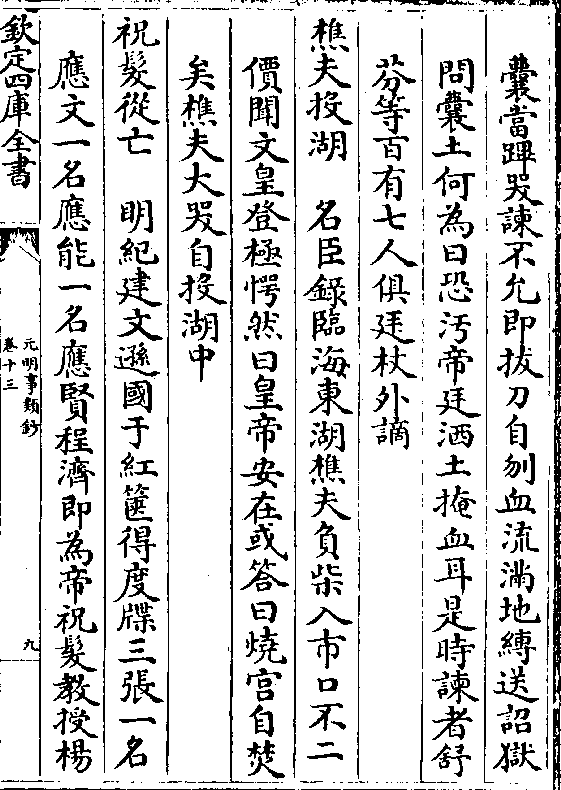 囊當蹕哭諫不允即拔刀自刎血流滿地縛送詔獄
問囊土何為曰恐汚帝廷洒土掩血耳是時諫者舒
芬等百有七人俱廷杖外謫
樵夫投湖　名臣錄臨海東湖樵夫負柴入市口不二
價聞文皇登極愕然曰皇帝安在或答曰燒宫自焚
矣樵夫大哭自投湖中
祝髮從亡　明紀建文遜國于紅篋得度牒三張一名
應文一名應能一名應賢程濟即為帝祝髮教授楊
欽定四庫全書
元明事類鈔
卷十三
九